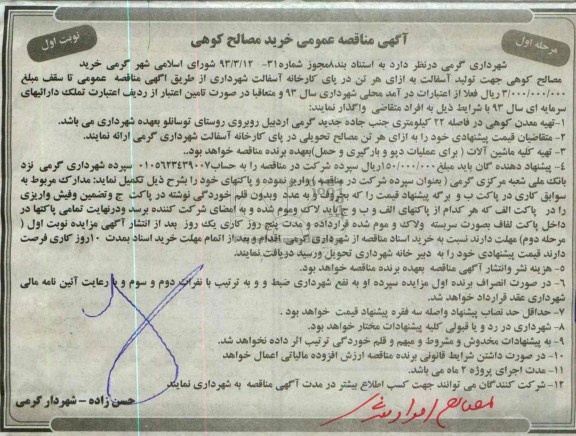 آگهی مناقصه عمومی خرید مصالح کوهی
مرحله اول
نوبت اول
شهرداری گرمی درنظر دارد به استناد بند۸مجوز شماره۳۱- ۹۳/۳/۱۲ شورای اسلامی شهر گرمی خرید
مصالح کوهی جهت تولید آسفالت به ازای هر تن در پای کارخانه آسفالت شهرداری از طریق آگهی مناقصه عمومی تا سقف مبلغ
۳/۰۰۰/۰۰۰/۰۰۰ ریال فعلا از اعتبارات در آمد محلی شهرداری سال ۹۳ و متعاقبا در صورت تامین اعتبار از ردیف اعتبارت تملک دارائیهای
سرمایه ای سال ۹۳ با شرایط ذیل به افراد متقاضی واگذار نمایند:
۱-تهیه معدن کوهی در فاصله ۲۲ کیلومتری جنب جاده جدید گرمی اردبیل روبروی روستای توسانلو بعهده شهرداری می باشد.
۲- متقاضیان قیمت پیشنهادی خود را به ازای هر تن مصالح تحویلی در پای کارخانه آسفالت شهرداری گرمی ارائه نمایند.
۳- تهیه کلیه ماشین آلات ( برای عملیات دپو و بارگیری و حمل)بعهده برنده مناقصه خواهد بود..
۴- پیشنهاد دهنده گان باید مبلغ ۱۵۰/۰۰۰/۰۰۰ریال سپرده شرکت در مناقصه را به حساب۰۱۰۵۶۲۳۴۳۹۰۰۷ سپرده شهرداری گرمی نزد
بانک ملی شعبه مرکزی گرمی ( بعنوان سپرده شرکت در مناقصه) واریز نموده و پاکتهای خود را بشرح ذیل تکمیل نماید: مدارک مربوط به
سوابق کاری در پاکت ب و برگه پیشنهاد قیمت را که بحروف و به عدد وبدون قلم خوردگی نوشته در پاکت ج وتضمین وفیش واریزی
را در پاکت الف که هر کدام از پاکتهای الف و ب و ج باید لاک وموم شده و به امضای شرکت کننده برسد ودرنهایت تمامی پاکتها در
داخل پاکت لفاف بصورت سربسته ولاک و موم شده قرارداده و مدت پنج روز کاری یک روز بعد از انتشار آگهی مزایده نوبت اول (
مرحله دوم) مهلت دارند نسبت به خرید اسناد مناقصه از شهرداری گرمی اقدام وبعد از اتمام مهلت خرید اسناد بمدت ۱۰روز کاری فرصت
دارند قیمت پیشنهادی خود را به دبیر خانه شهرداری تحویل ورسید دریافت نمایند.
۵- هزینه نشر وانتشار آگهی مناقصه بعهده برنده مناقصه خواهد بود.
۶- در صورت انصراف برنده اول مزایده سپرده او به نفع شهرداری ضبط و و به ترتیب با نفرات دوم و سوم و با رعایت آئین نامه مالی
شهرداری عقد قرارداد خواهد شد.
۷-حداقل حد نصاب پیشنهاد واصله سه فقره پیشنهاد قیمت خواهد بود .
۸- شهرداری در رد و یا قبولی کلیه پیشنهادات مختار خواهد بود.
۹- به پیشنهادات مخدوش و مشروط و مبهم و قلم خوردگی ترتیب اثر داده نخواهد شد.
۱۰- در صورت داشتن شرایط قانونی برنده مناقصه ارزش افزوده مالیاتی اعمال خواهد
۱۱- مدت اجرای پروژه ۲ ماه می باشد.
۱۲-شرکت کنندگان می توانند جهت کسب اطلاع بیشتر در مدت آگهی مناقصه به شهرداری نمایند
حسن زاده - شهردار گرمی
مصالح